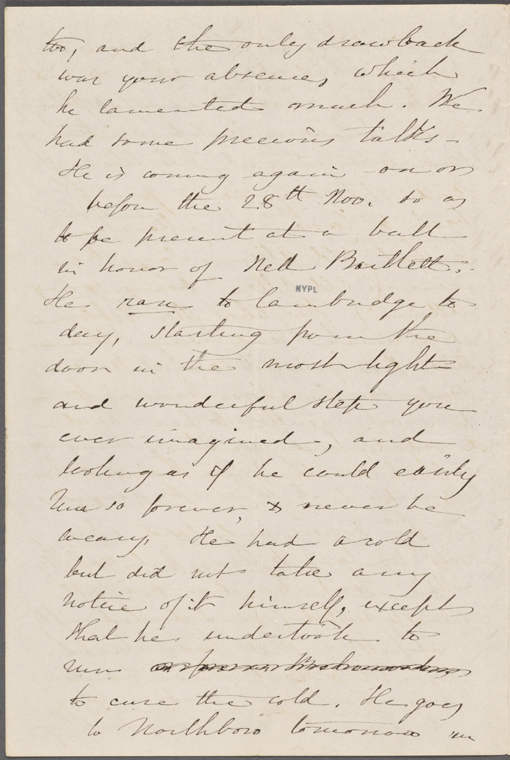 too, and the only drawback
was your absence, which
he lamented much. We
had some precious talks –
He is coming again on or
before the 28th Nov. so as
to be present at a ball
in honor of Nell Bartlett.
NYPL
He ran to Cambridge to
day, starting from the
door in the most light
and wonderful step you
ever imagined, and
looking as if he could easily
run so forever, & never be
weary. He had a cold
but did not take any
notice of it himself, except
that he undertook to
run
to cure the cold. He goes
to Northboro tomorrow